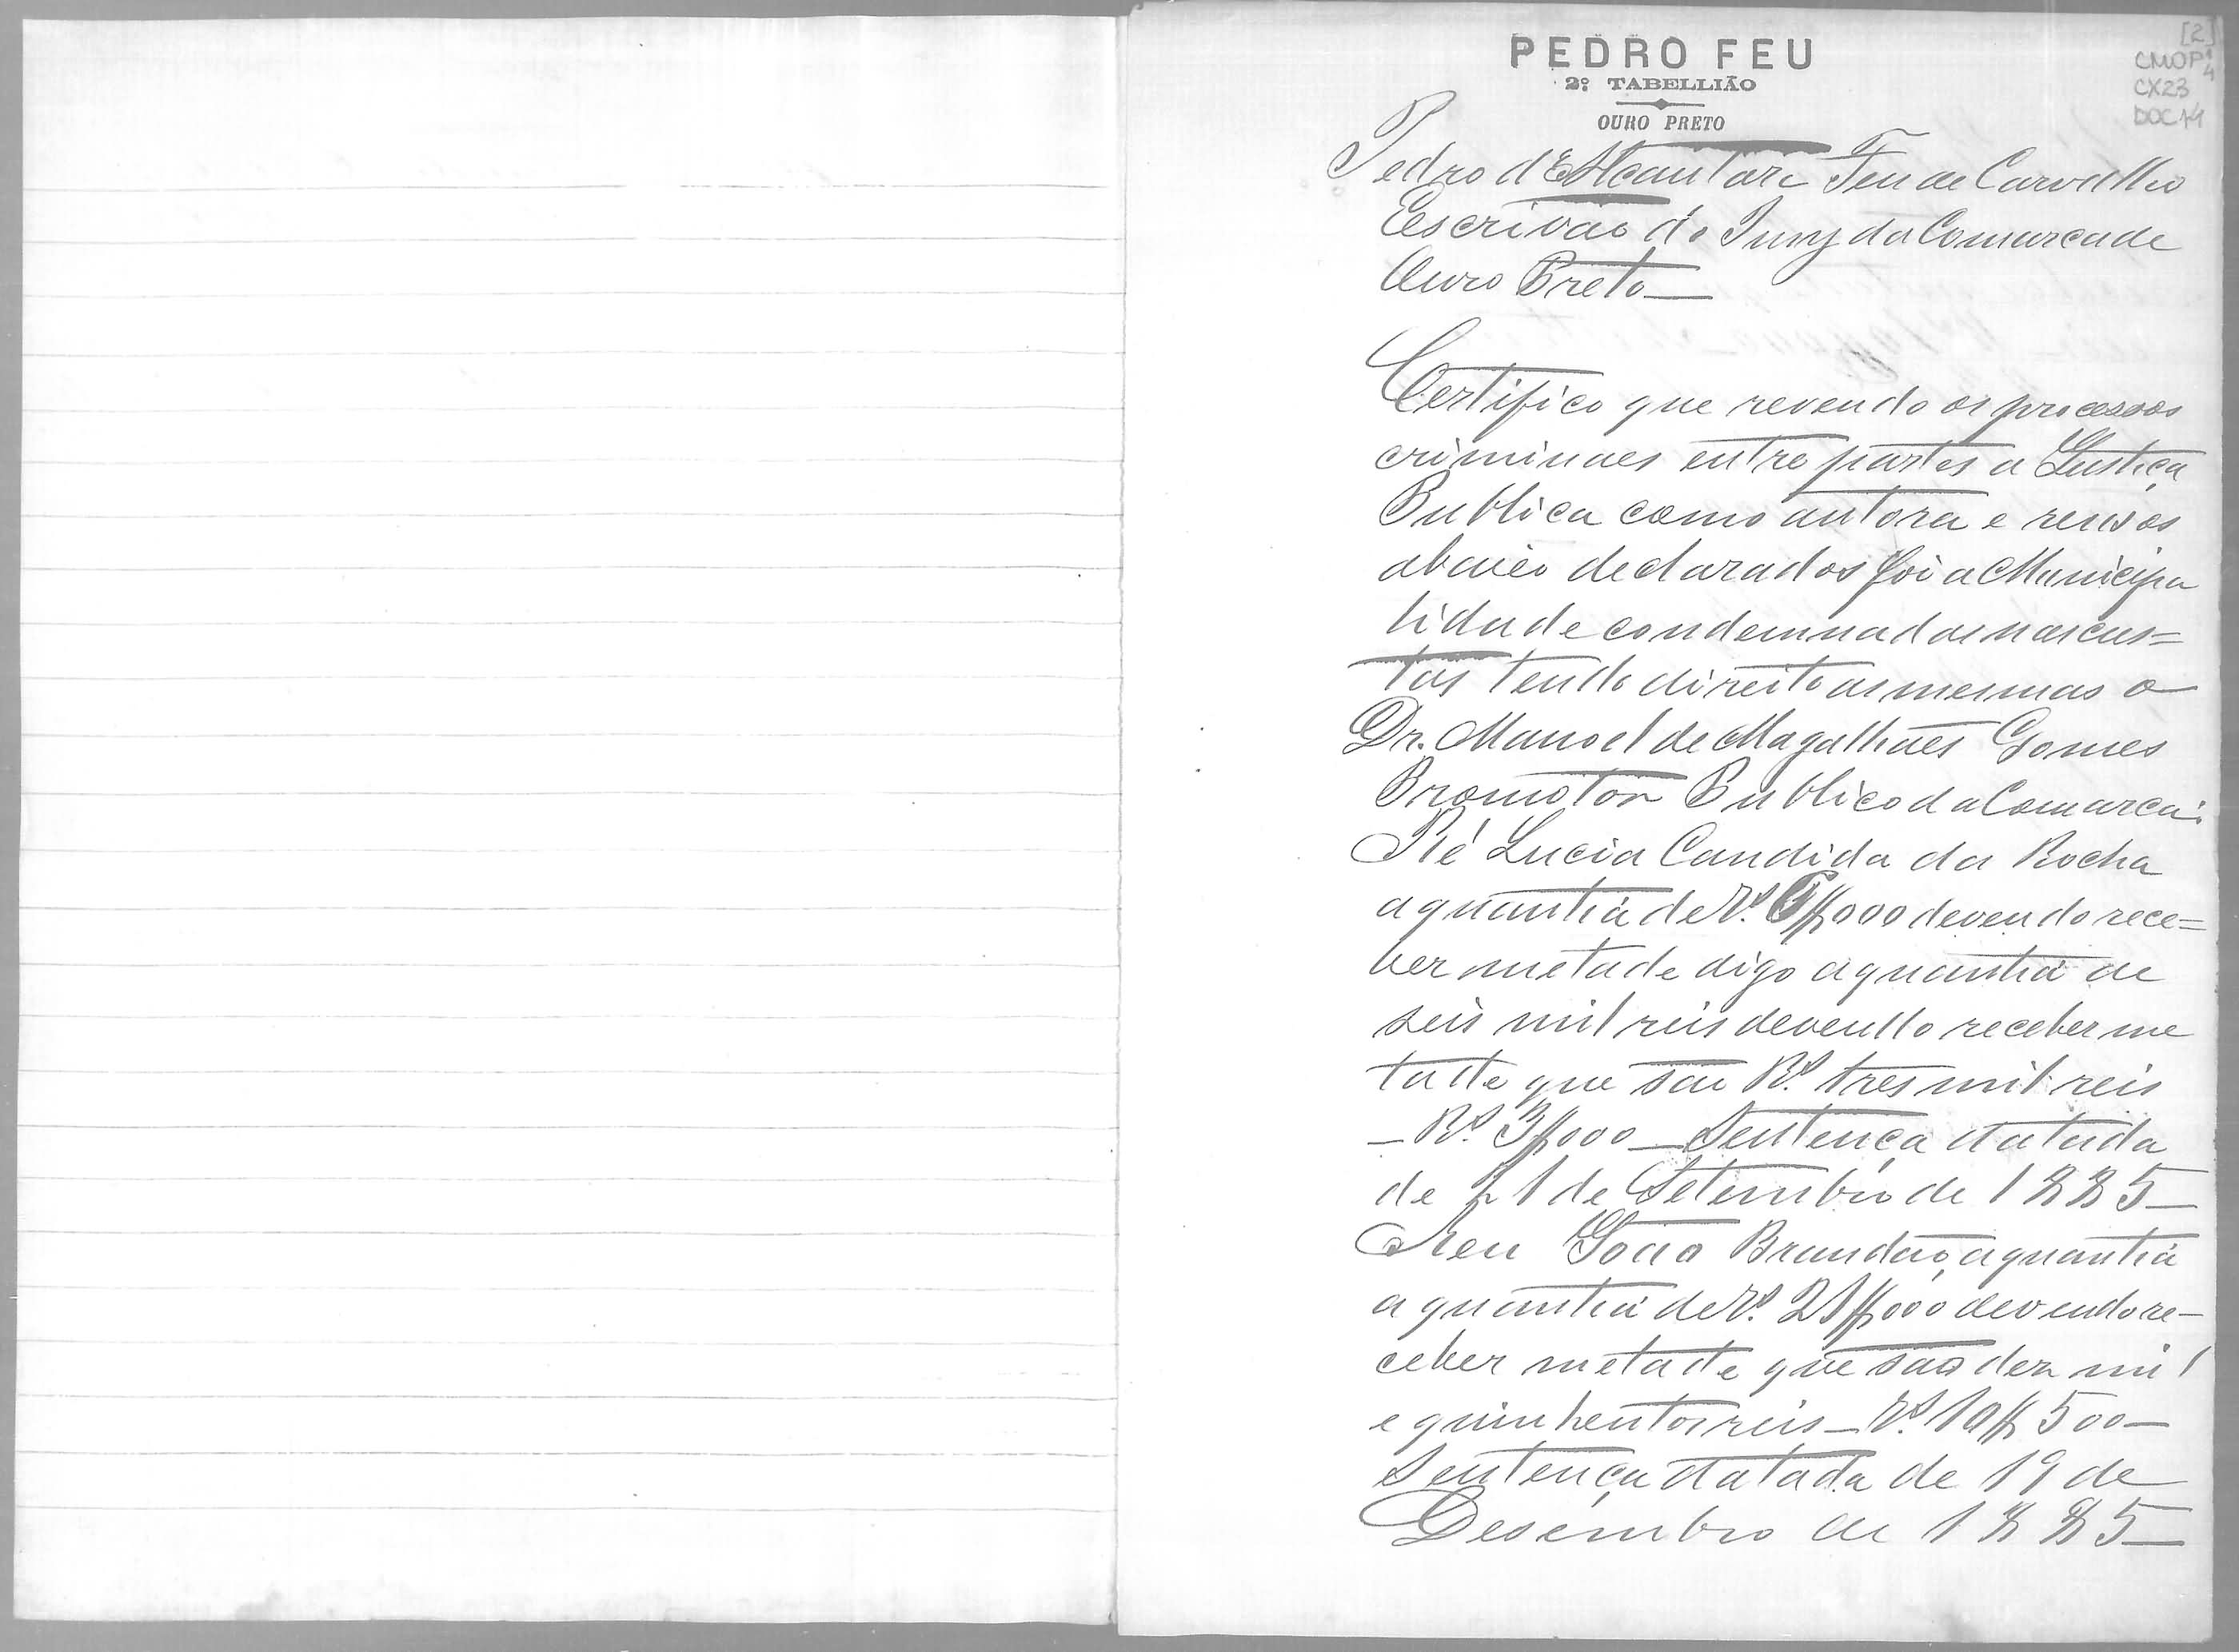 PEDRO FEU
2º TABELLIÃO
OURO PRETO
[2]
CMOP
CX23
DOC 14
Pedro d'Alcantara Feu de Carvalho
Escrivão do Jury da Comarca de
Ouro Preto—
Certifico que revendo os processos
criminaes entre partes a Justiça
Publica como autora e reus os
abaixo declarados foi a Municipa
lidade condemnada nas cus=
tas tendo direito as mesmas o
Dr. Manoel de Magalhães Gomes
Promotor Publico da Comarca:
Ré Lucia Candida da Rocha
a quantia de Rs. 6$000 devendo rece=
ber metade digo a quantia de
seis mil reis devendo receber me
tade que são Rs. tres mil reis
— Rs. 3$000 — Sentença datada
de 21 de Setembro de 1885—
Reu João Brandão, a quantia
a quantia de Rs. 21$000 devendo re-
ceber metade que são dez mil
e quinhentos reis — Rs. 10$500—
Sentença datada de 19 de
Desembro de 1885—